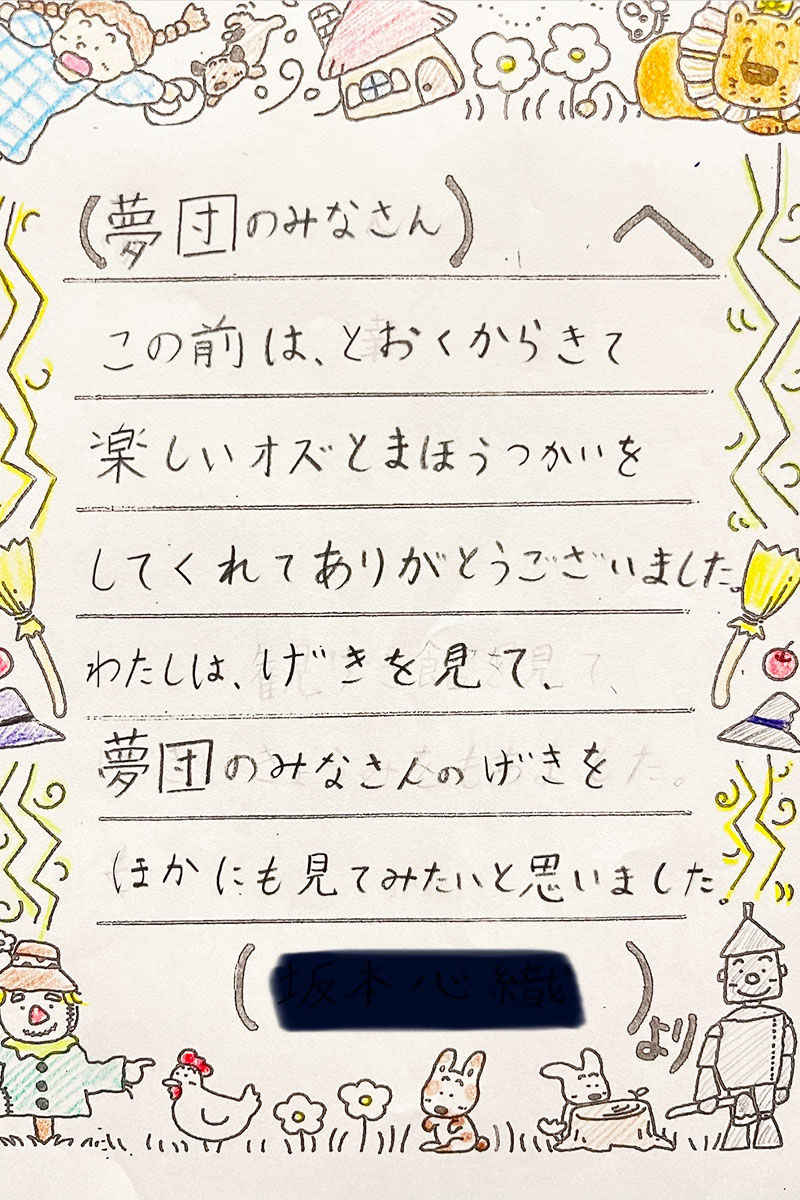 (夢団のみなさん) へ
この前は、とおくからきて
楽しいオズとまほうつかいを
してくれてありがとうございました。
わたしは、げきを見て、
夢団のみなさんのげきを
ほかにも見てみたいと思いました。
( ) より